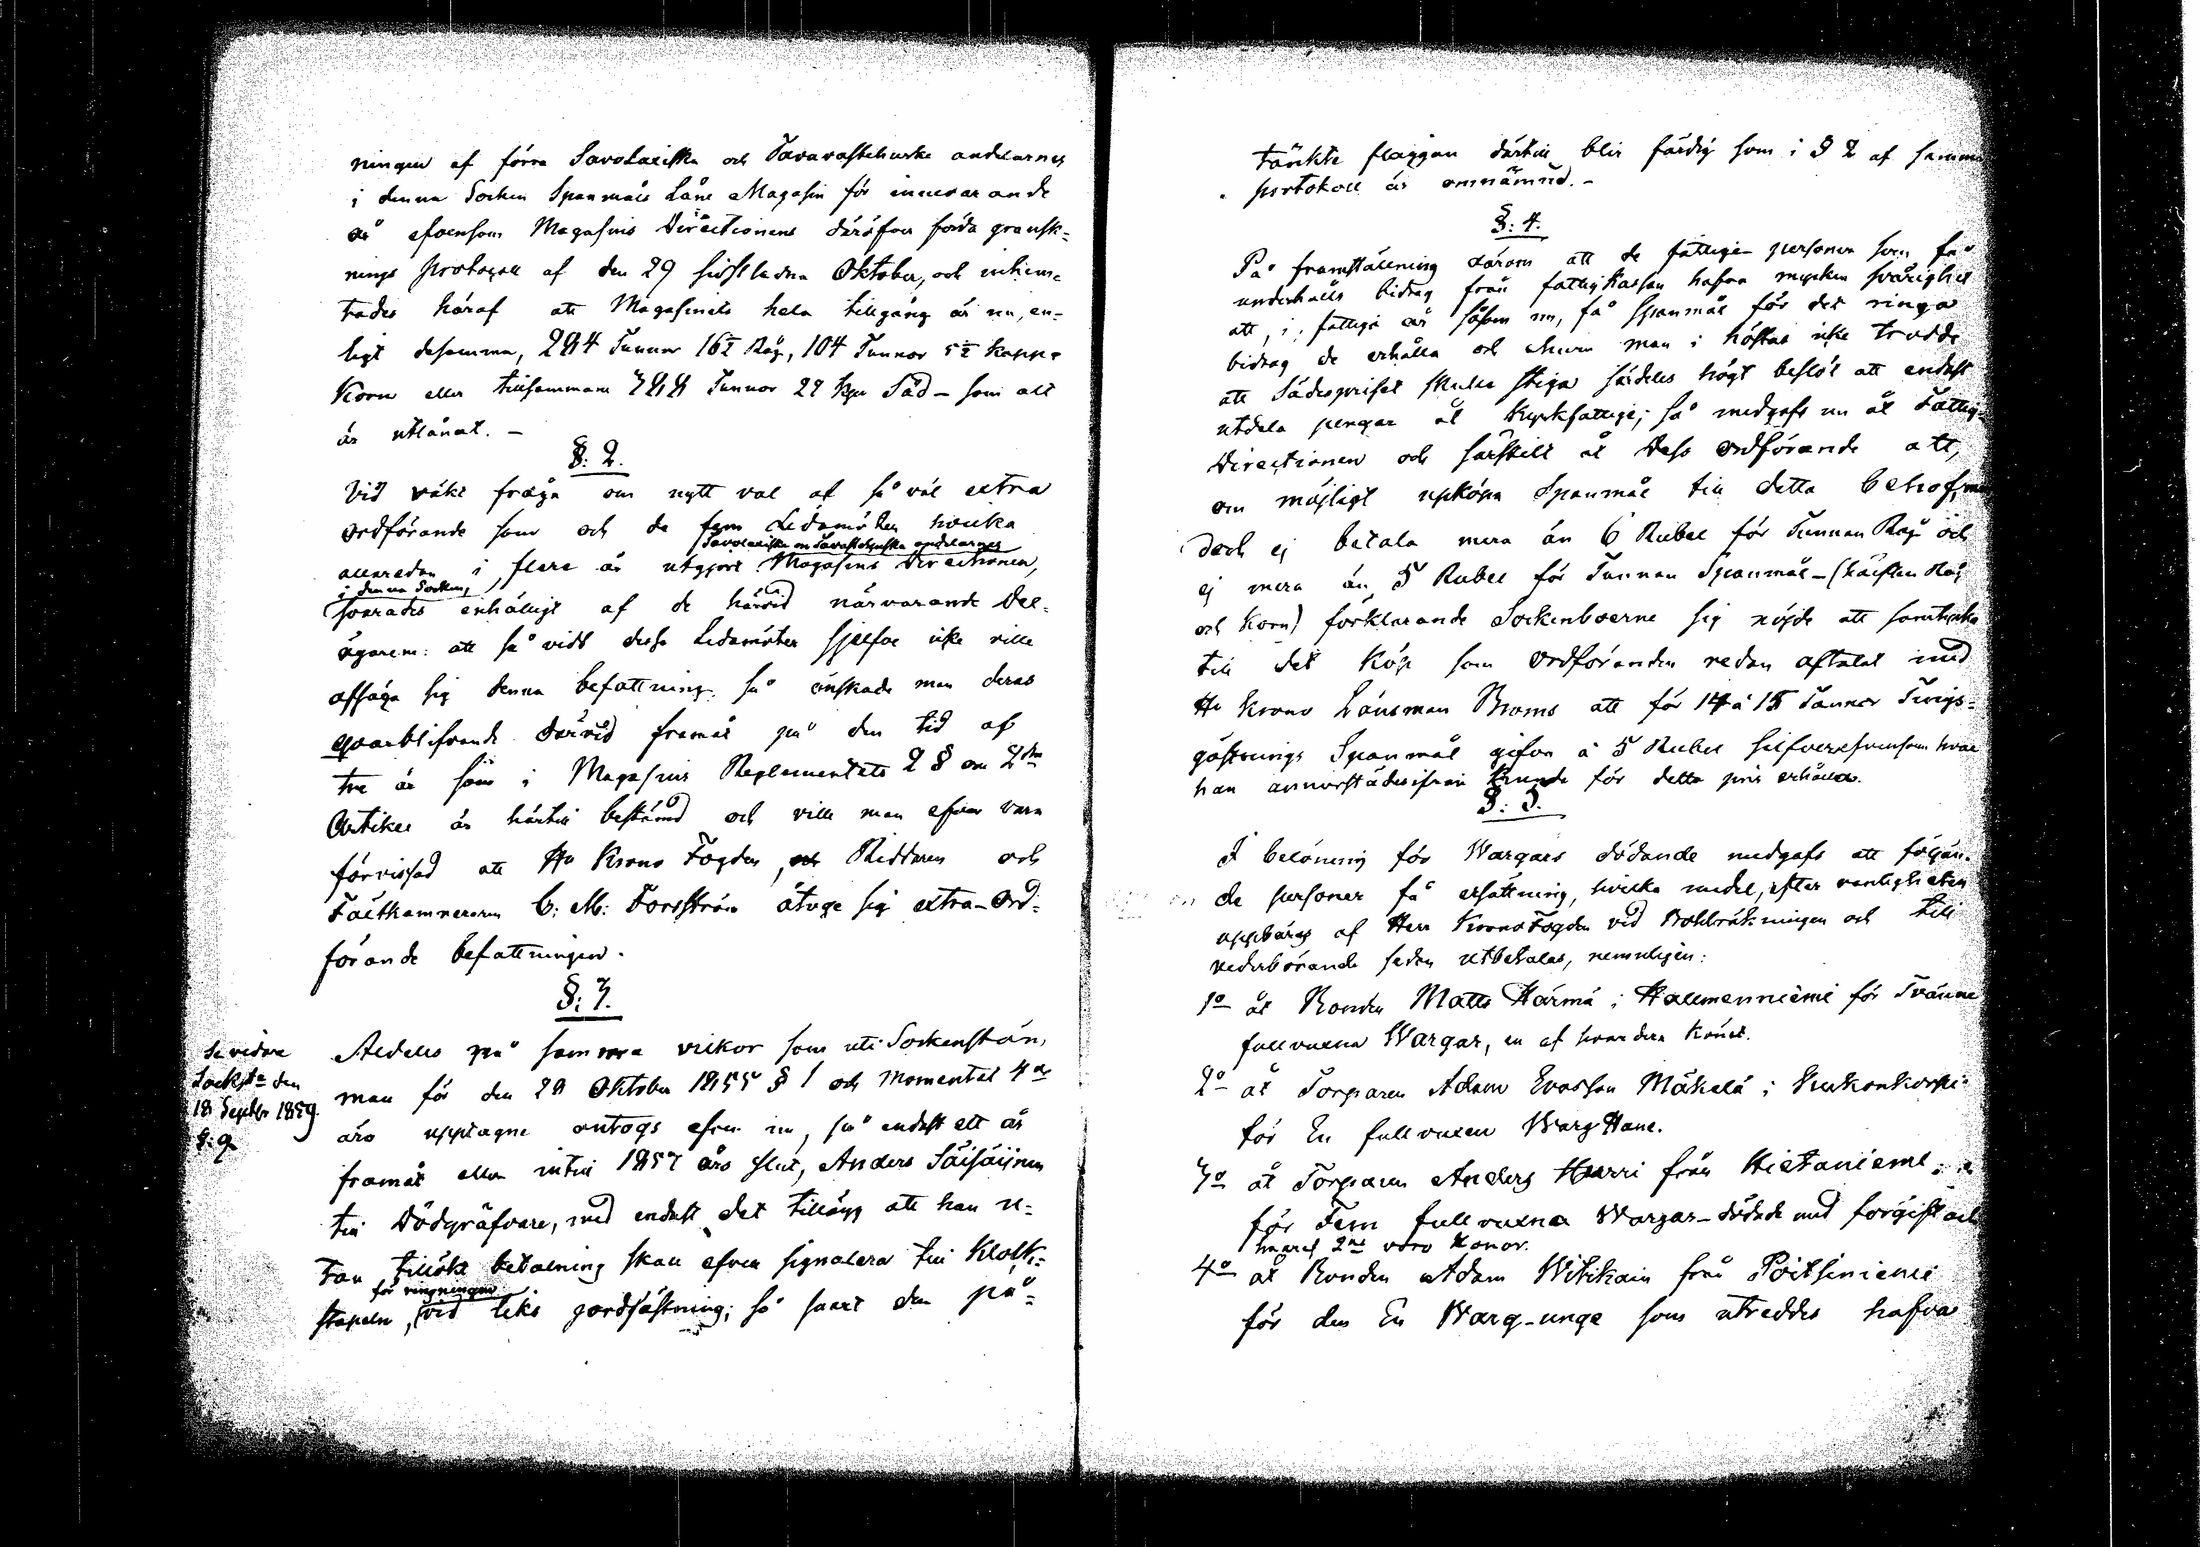 ningen af förra Savolaxiska och Tavastehuske andelarnes
i denna Socken Spanmåls Låne Magasin för innevarande
år äfvensom Magasins Directionens däröfver förda gransk-
nings protocoll af den 29 sidstledna Oktober, och inhem-
tades häraf att Magasinets hela tillgång är nu, en-
ligt desamma, 284 Tunnor 16½ Råg, 104 Tunnor 5½ kappe
Korn eller tillsammans 388 Tunnor 22 kpr Säd – som allt
är utlånat. –
§: 2.
Vid väkt fråga om nytt val af så väl extra
ordförande som och de fem Ledamöter hvilka
Savolaxiska och Tavastehuska andelarnes
allaredan i flere år utgjort Magasins Directionen,
i denna Socken,
svarades enhälligt af de härvid närvarande Del-
ägarene: att så vidt desse Ledamöter sjelfve icke ville
afsäga sig denna befattning, så önskade man deras
qvarblifvande dervid framåt på den tid af
tre år som i Magasins Reglementets 2 § om 2dra
Artikel är härtill bestämd och ville man äfven vara
förvissad att Hr Krono Fogden, och Riddaren och
Fältkamreraren C: M: Forsström åtoge sig extra-Ord-
förande befattningen.
§: 3.
Se vidare
Sockst. den
18 Septbr 1859
§: 9
Aldeles på samma vilkor som uti Sockenstäm-
man för den 28 Oktober 1855 § 1 och Momentet 4de
äro upptagne antogs äfven nu, på endast ett år
framåt eller intill 1857 års slut, Anders Säisäinen
till Dödgräfvare, med endast det tillägg att han u-
tan tillökt betalning skall äfven signalera till Klock-
för ringningen
stapeln, vid liks jordfästning; så snart den på-
tänkte flaggan därtill blir färdig som i § 2 af samma
protokoll är omnämnd. –
§: 4.
På framställning därom att de fattige personer som få
underhålls bidrag från fattigkassan hafva mycken svårighet
att, i fattiga år såsom nu, få Spanmål för det ringa
bidrag de erhålla och ehuru man i höstas icke trodde
att Sädespriset skulle stiga särdeles högt beslöt att endast
utdela pengar åt Kyrkfattige; så medgafs nu åt Fattig-
Directionen och särskilt åt Dess ordförande att,
om möjligt upköpa Spanmål till detta behof, men
doch ej betala mera än 6 Rubel för Tunnan Råg och
ej mera än 5 Rubel för Tunnan Spanmål – (hälften Råg
och Korn) förklarande Sockenboerne sig nöjde att samtycka
till det köp som ordföranden redan aftalat med
Hr Krono Länsman Broms att för 14 à 15 Tunnor Tings-
gästnings Spanmål gifva à 5 Rubel silfver äfvensom hvad
han annorstädesifrån kunde för detta pris erhålla.
§: 5.
I belöning för Wargars dödande medgafs att följan-
de personer få ersättning, hvilka medel, efter vanligheten
uppbäras af Herr KronoFogden vid Bohlräkningen och till
vederbörande sedan utbetalas, nemnligen:
1o åt Bonden Matts Härmä i Hallmenniemi för Tvänne
fullvuxna Wargar, en af hvardera könet.
2o åt Torparen Adam Evasson Mäkelä i Kurkonkorpi
för En fullvuxen Warg Hane.
3o åt Torparen Anders Hurri från Hietaniemi
för Fem fullvuxna Wargar – dödade med förgift och
hvaraf 2ne voro Honor.
4o åt Bonden Adam Witikain från Poitsiniemi
för den En Warg-unge som utreddes hafva